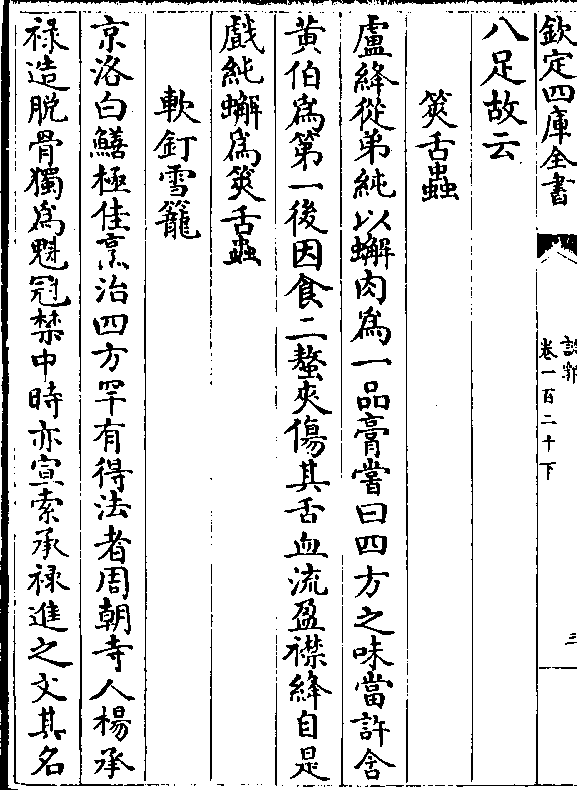 欽定四庫全書
説郛
卷一百二十下
三
八足故云
筴舌蟲
盧絳從弟純以蠏肉爲一品膏嘗曰四方之味當許含
黃伯爲第一後因食二螯夾傷其舌血流盈襟絳自是
戲純蠏爲筴舌蟲
軟釘雪籠
京洛白鱔極佳烹治四方罕有得法者周朝寺人楊承
禄造脱骨獨爲魁冠禁中時亦宣索承禄進之文其名